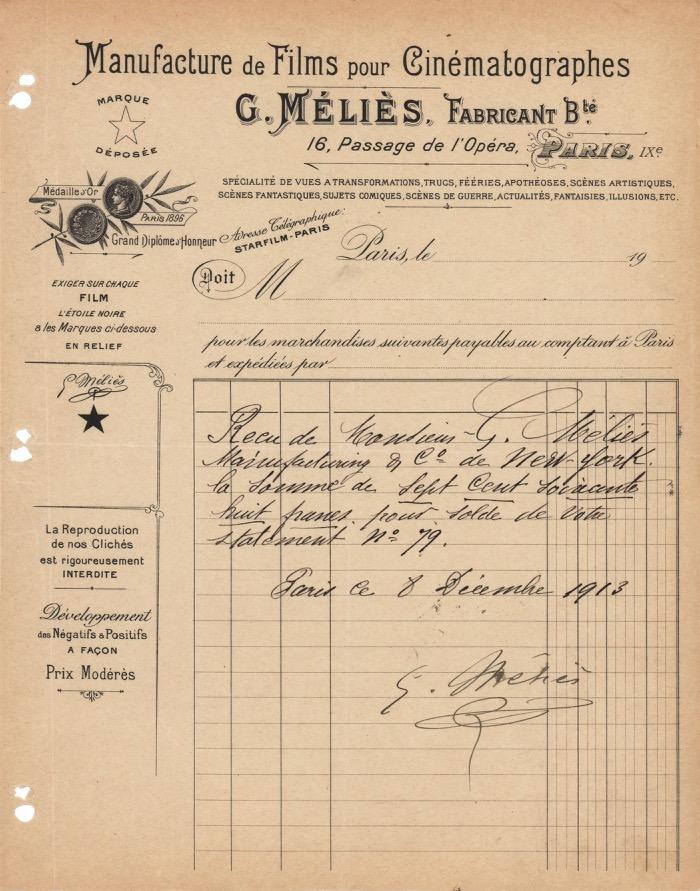 Manufacture de Films pour Cinématographes
MARQUE
DÉPOSÉE
G. MÉLIÈS, FABRICANT Bté
16, Passage de l'Opéra, PARIS, IXe
SPÉCIALITÉ DE VUES A TRANSFORMATIONS, TRUCS, FÉERIES, APOTHÉOSES, SCÈNES ARTISTIQUES,
SCÈNES FANTASTIQUES, SUJETS COMIQUES, SCÈNES DE GUERRE, ACTUALITÉS, FANTAISIES, ILLUSIONS, ETC.
Médaille d'Or
PARIS 1896
Grand Diplôme d'Honneur
Adresse Télégraphique:
STARFILM-PARIS
Paris, le 19
Doit M
EXIGER SUR CHAQUE
FILM
L'ÉTOILE NOIRE
& les Marques ci-dessous
EN RELIEF
pour les marchandises suivantes payables au comptant à Paris
et expédiées par
G. Méliès
Recu de Monsieur G. Méliès
Manufacturing & Co de New-York.
la Somme de Sept Cent Soixante
huit francs. pour Solde de Votre
statement No 79.
Paris le 8 Décembre 1913
G. Méliès
La Reproduction
de nos Clichés
est rigoureusement
INTERDITE
Développement
des Négatifs & Positifs
A FAÇON
Prix Modérés